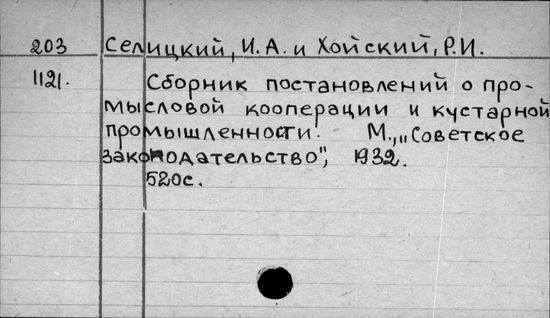 203 Селицкий, И. А. и Хойский, Р.И.
1121. Сборник постановлений о про-
мысловой кооперации и кустарной
промышленности. М., „Советское
законодательство", 1932.
520с.